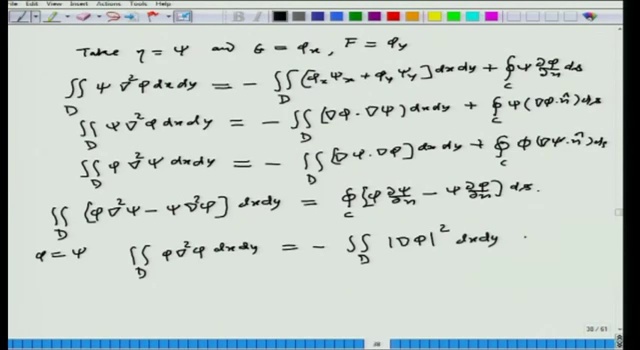 File Edit View Insert Actions Tools Help
Take η = ψ and G = φₓ, F = φᵧ
∬_D ψ ∇²φ dxdy = - ∬_D [φₓψₓ + φᵧψᵧ] dxdy + ∮_C ψ ∂φ/∂n ds
∬_D ψ ∇²φ dxdy = - ∬_D (∇φ · ∇ψ) dxdy + ∮_C ψ (∇φ · n̂) ds
∬_D φ ∇²ψ dxdy = - ∬_D [∇ψ · ∇φ] dxdy + ∮_C φ (∇ψ · n̂) ds
∬_D [φ∇²ψ - ψ∇²φ] dxdy = ∮_C [φ ∂ψ/∂n - ψ ∂φ/∂n] ds.
φ = ψ ∬_D φ∇²φ dxdy = - ∬_D |∇φ|² dxdy
38 / 61
38